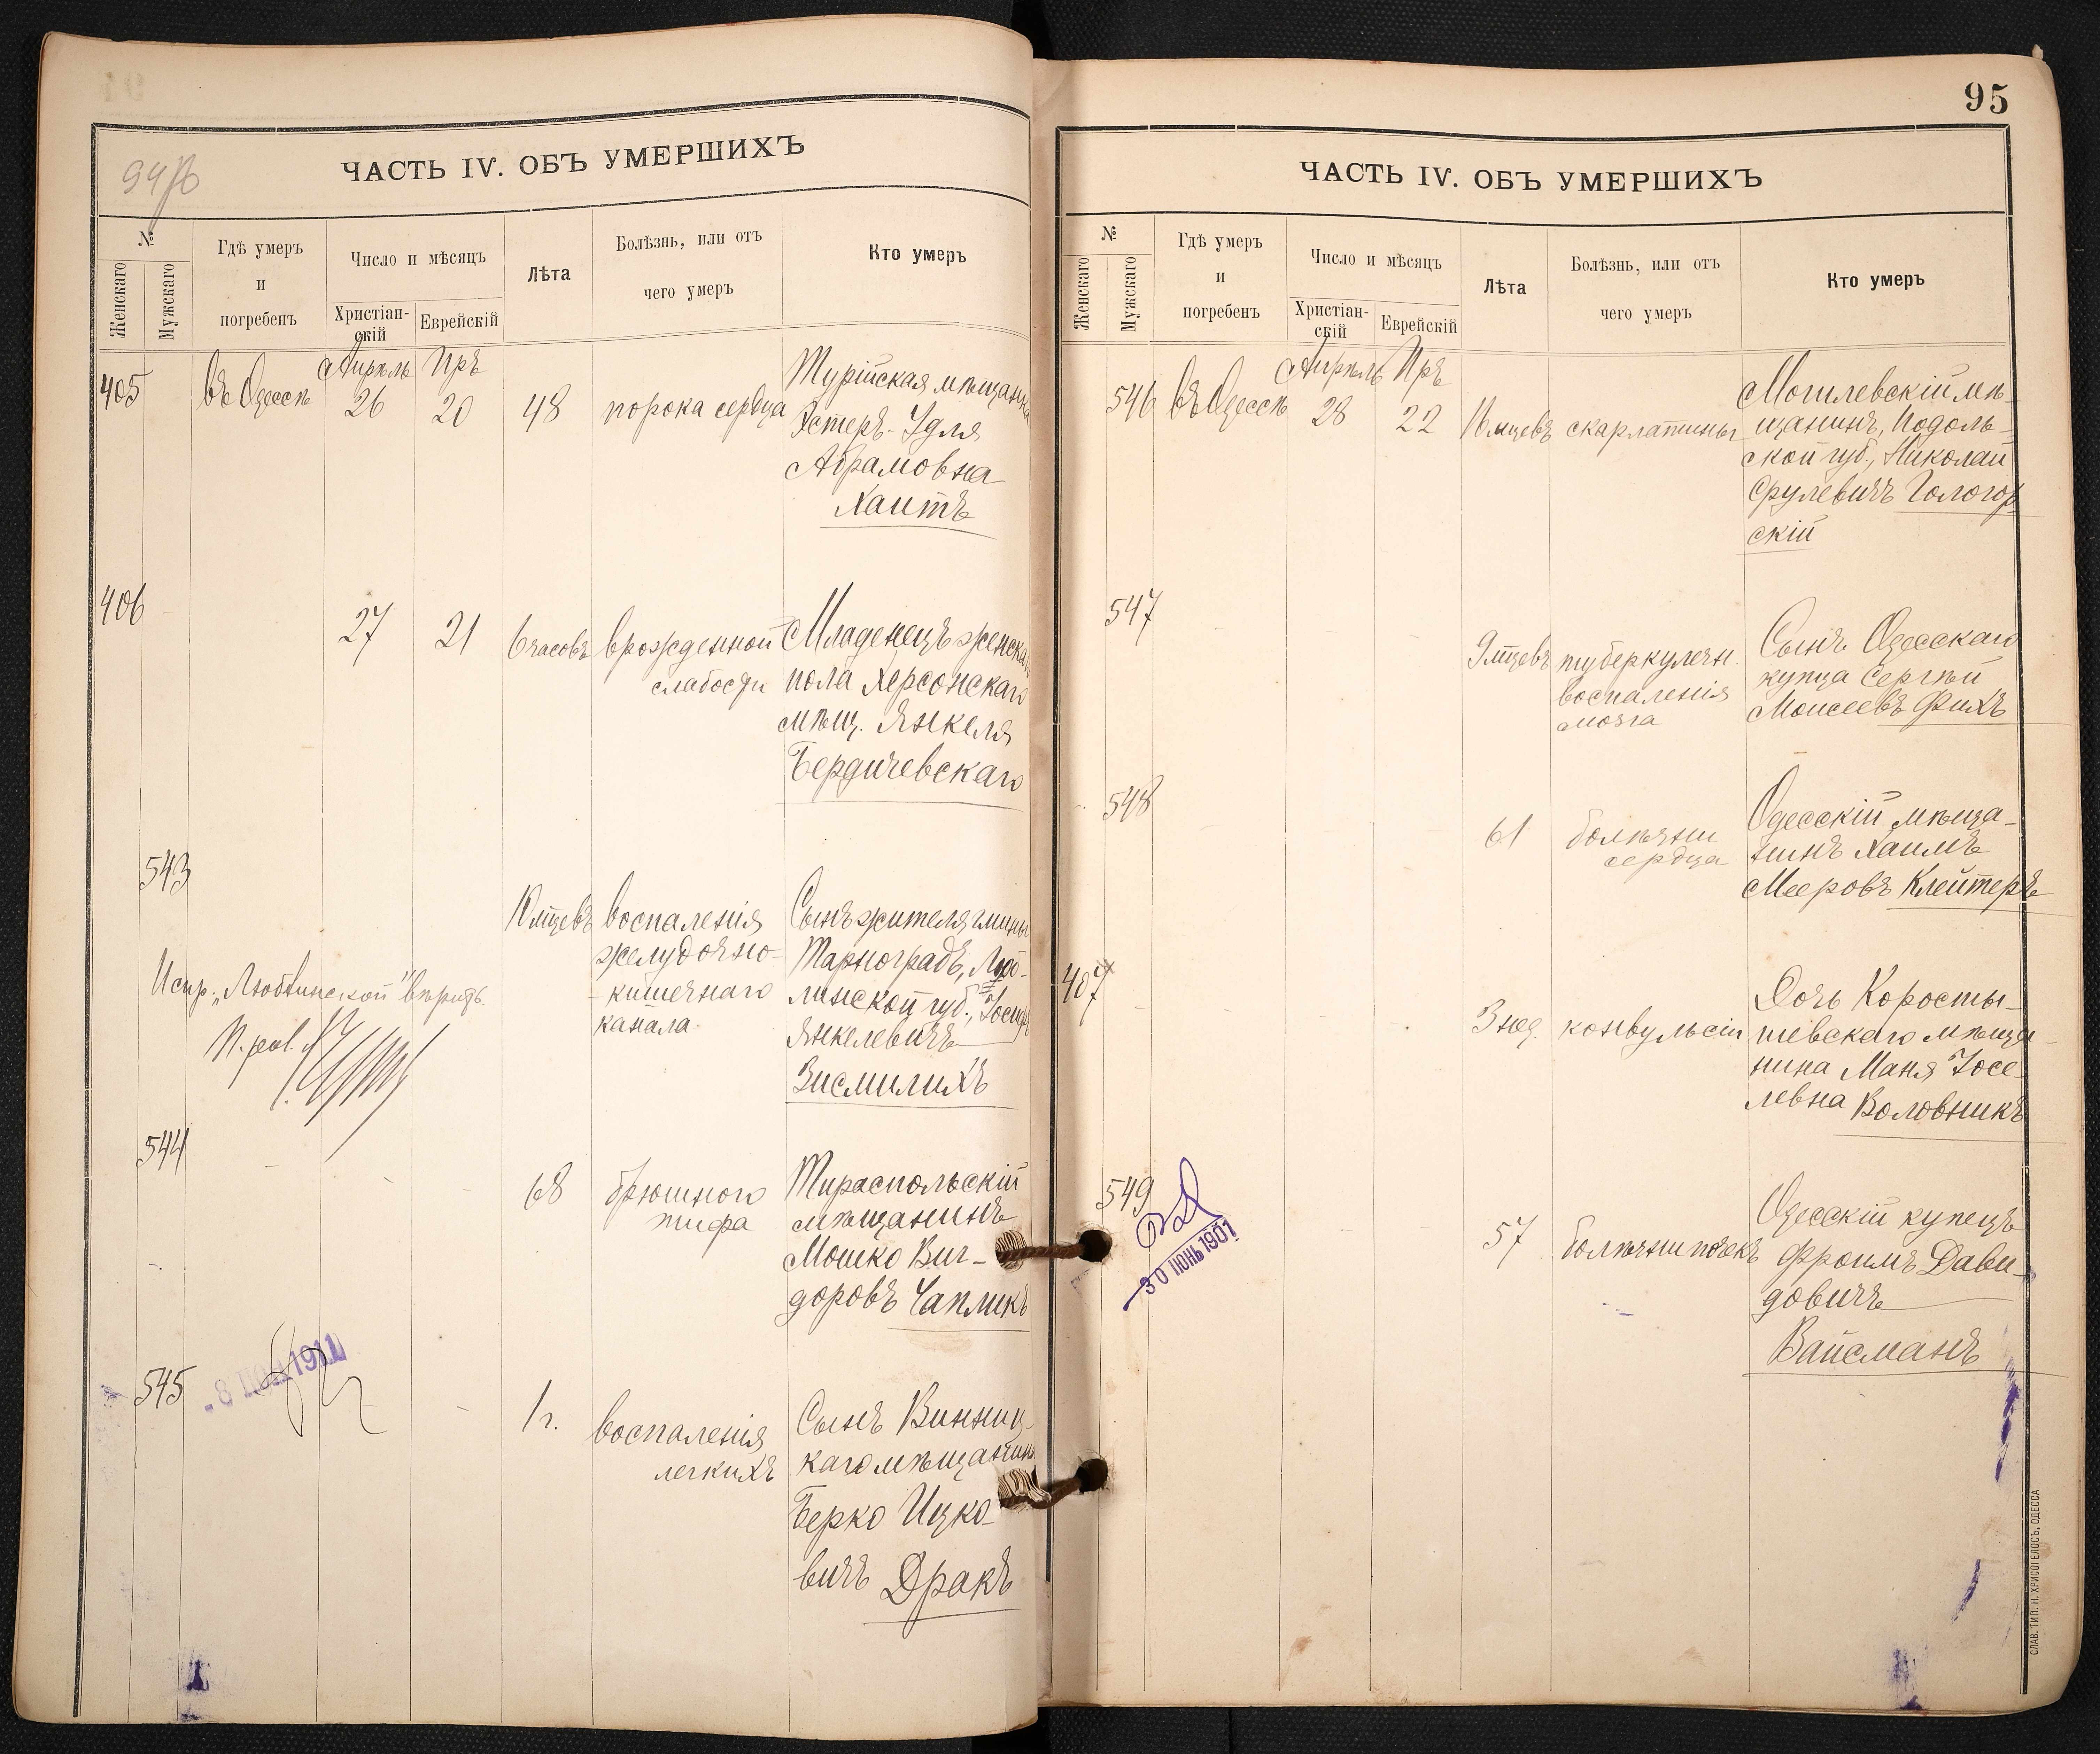 94/б
ЧАСТЬ IV. ОБЪ УМЕРШИХЪ
№
Женскаго
Мужскаго
Гдѣ умеръ
и
погребенъ
Число и мѣсяцъ
Христіан-
скій
Еврейскій
Лѣта
Болѣзнь, или отъ
чего умеръ
Кто умеръ
405
въ Одессѣ
Апрѣль
26
Иръ
20
48
порока сердца
Турійская мѣщанка
Эстеръ-Удля
Абрамовна
Хаитъ
406
27
21
6 часовъ
врожденной
слабости
Младенецъ женскаго
пола Херсонскаго
мѣщ. Янкеля
Бердичевскаго
543
10 мѣцевъ
воспаленія
желудочно-
кишечнаго
канала
Сынъ жителя гмины
Тарноградъ, Люб-
линской губ.,
Янкелевичъ
Зисмилихъ
Испр. „Люблинской" вѣрить.
544
68
брюшного
тифа
Тираспольскій
мѣщанинъ
Мошко Виг-
доровъ Чапликъ
545
1911
1 г.
воспаленія
легкихъ
Сынъ Винниц-
каго мѣщанина
Берко Ицко-
вичъ Дракъ
95
ЧАСТЬ IV. ОБЪ УМЕРШИХЪ
№
Женскаго
Мужскаго
Гдѣ умеръ
и
погребенъ
Число и мѣсяцъ
Христіан-
скій
Еврейскій
Лѣта
Болѣзнь, или отъ
чего умеръ
Кто умеръ
546
въ Одессѣ
Апрѣль
28
Иръ
22
скарлатины
Могилевскій мѣ-
щанинъ, Подоль-
ской губ., Николай
Срулевичъ Гологор-
скій
547
9 мѣцевъ
туберкулезн.
воспаленія
мозга
Сынъ Одесскаго
купца Сергѣй
Моисеевъ Фихъ
548
61
болѣзни
сердца
Одесскій мѣща-
нинъ Хаимъ
Мееровъ Клейтеръ
407
3 нед.
конвульсіи
Дочь Коросты-
шевскаго мѣща-
нина Маня Іосе-
левна Воловникъ
549
30 ІЮНЬ 1901
57
болѣзни почекъ
Одесскій купецъ
Фроимъ Дави-
довичъ
Вайсманъ
СЛАВ. ТИП. Н. ХРИСОГЕЛОСЪ, ОДЕССА